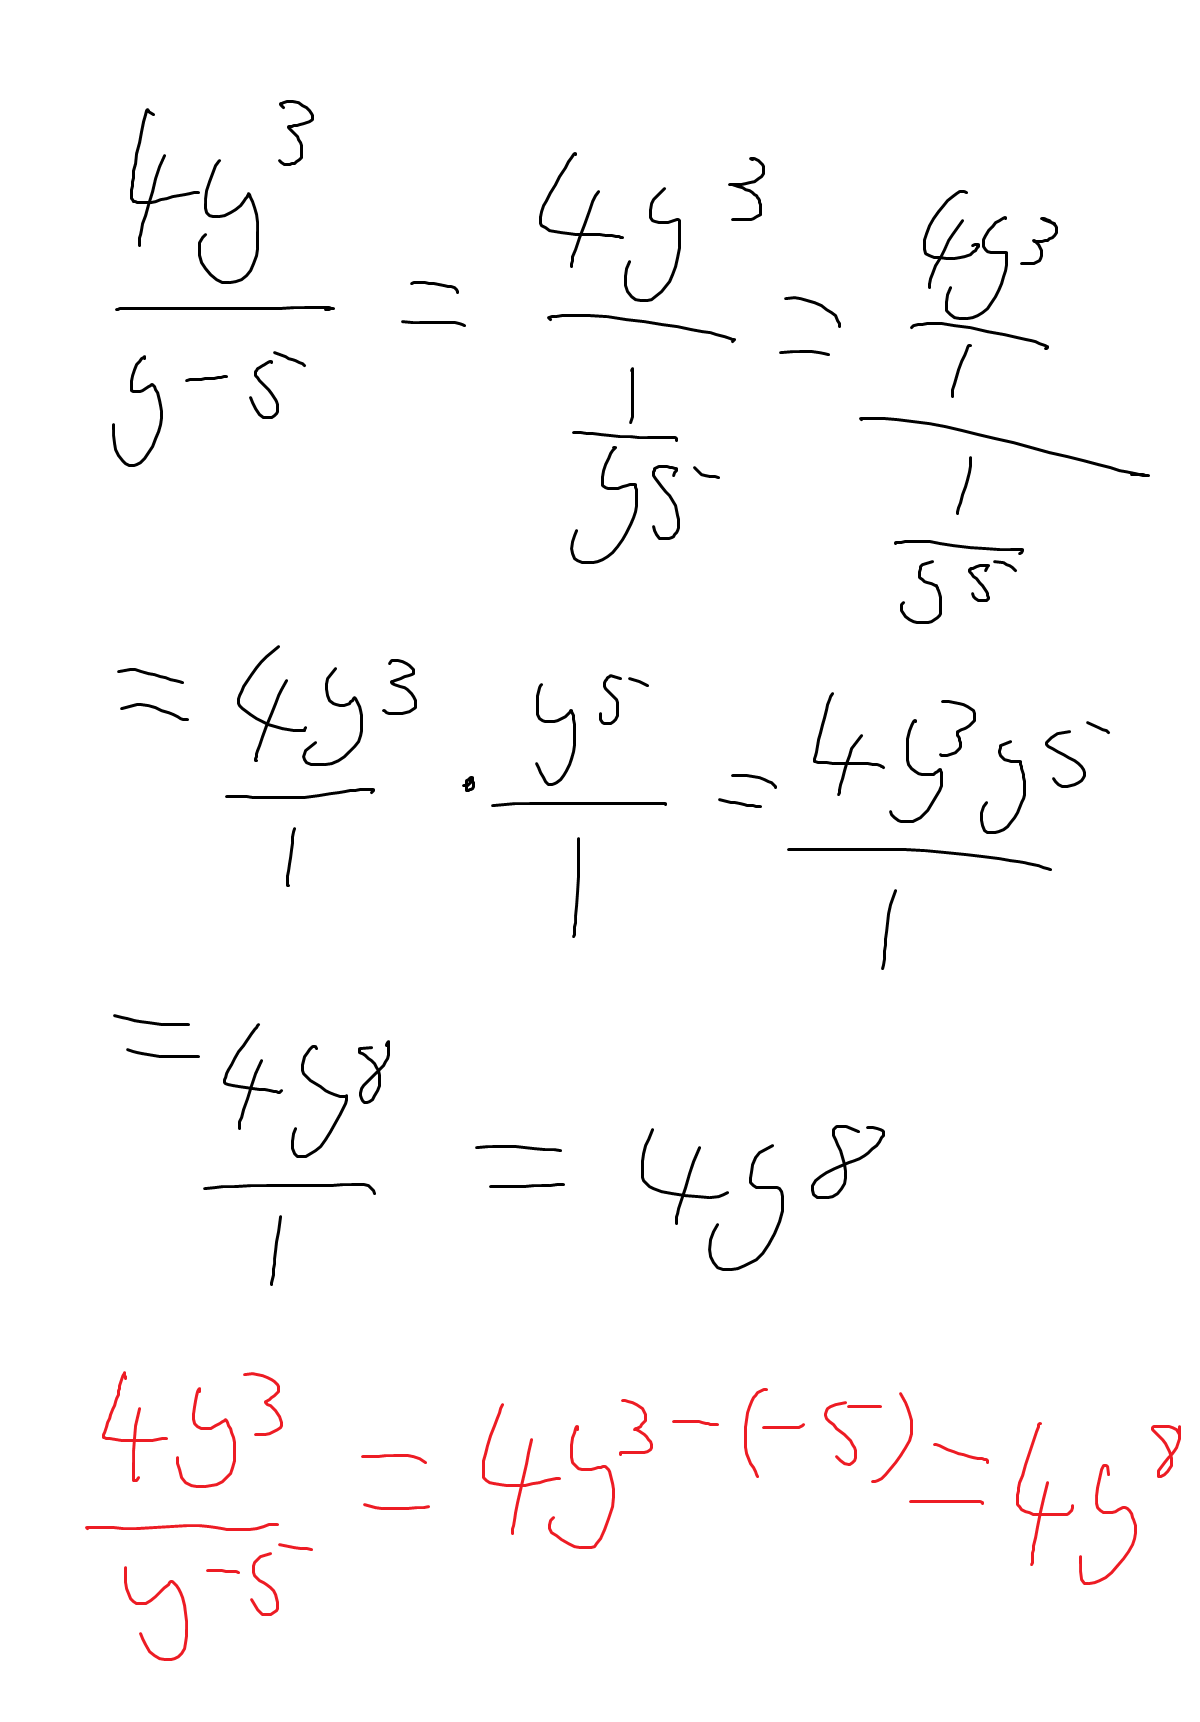 4y³/y⁻⁵ = 4y³/(1/y⁵) = (4y³/1)/(1/y⁵)
= 4y³/1 · y⁵/1 = 4y³y⁵/1
= 4y⁸/1 = 4y⁸
4y³/y⁻⁵ = 4y³⁻⁽⁻⁵⁾ = 4y⁸